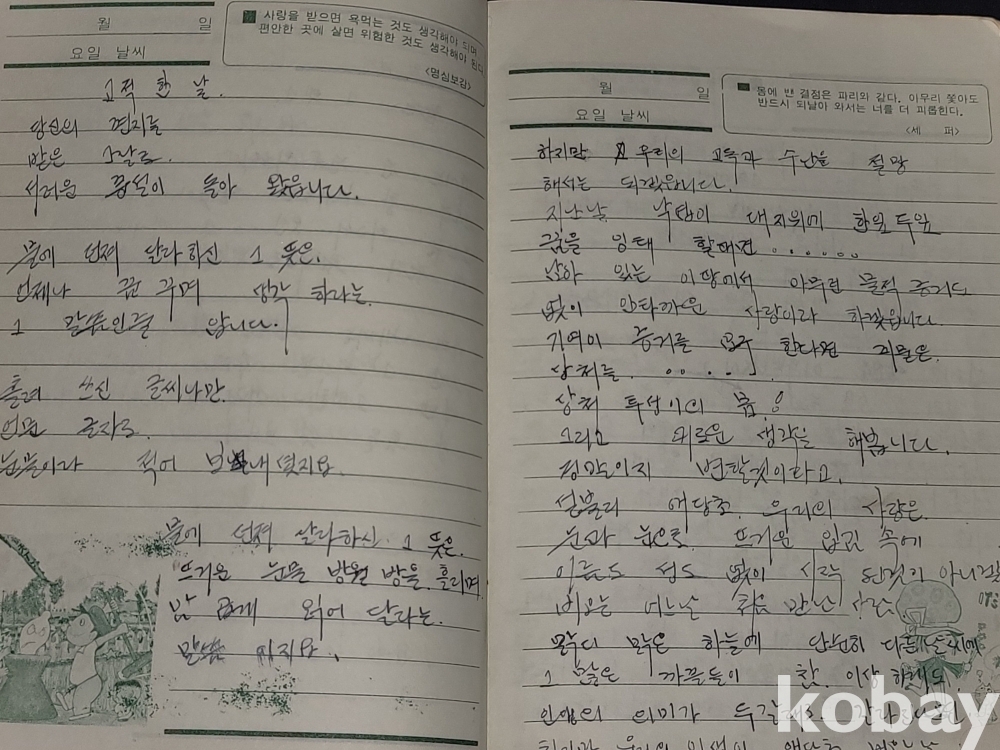 월 일
요일 날씨
사랑을 받으면 욕먹는 것도 생각해야 되며
편안한 곳에 살면 위험한 것도 생각해야 된다
<명심보감>
고적 한 날.
당신의 편지를
받은 그날로.
서러운 꿈썰이 돌아 왔읍니다.
물에 던져 달라하신 그 뜻은.
언제나 꿈 꾸며 생각 하라는.
그 말씀인줄 압니다.
흘려 쓰신 글씨나만.
글자로.
눈물이라 적어 보내셨지요.
물에 던져 달라하신 그 뜻은.
뜨거운 눈물 방울 방울 흘리며
맘 읽어 달라는.
말씀 이지요.
월 일
요일 날씨
몸에 밴 결점은 파리와 같다. 아무리 쫓아도
반드시 되날아 와서는 너를 더 괴롭힌다.
<세 퍼>
하지만 우리의 고독과 수난을 절망
해서는 되겠읍니다.
지난날 낙엽이 대지위에 한잎 두잎
꿈을 잉태 할때면......
남아 있는 이 땅에서 아무런 물적 증거도
없이 안타까운 사랑이라 하겠읍니다.
기억이 증거를 요구 한다면 괴물은.
상처를......
상처 투성이의 봄!
그리고 괴로운 생각을 해봅니다.
정말이지 변할것이라고.
섣불리 애당초. 우리의 사랑은.
눈과 눈으로. 뜨거운 입김 속에
이름도 성도 없이 시작 된것이 아니겠
비오는 어느날 처음 만난 사람.
맑디 맑은 하늘에 단순히
그 많은 까끌들이 찬. 이상 하데도
인생의 의미가
kobay